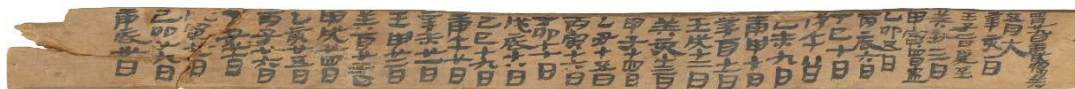 五月大
辛亥一日
壬子二日夏至
癸丑三日
甲寅四日
乙卯五日
丙辰六日
丁巳七日
戊午八日
己未九日
庚申十日
辛酉十一日
壬戌十二日
癸亥十三日
甲子十四日
乙丑十五日
丙寅十六日
丁卯十七日
戊辰十八日
己巳十九日
庚午廿日
辛未廿一日
壬申廿二日
癸酉廿三日
甲戌廿四日
乙亥廿五日
丙子廿六日
丁丑廿七日
寅廿八日
己卯廿九日
庚辰卅日